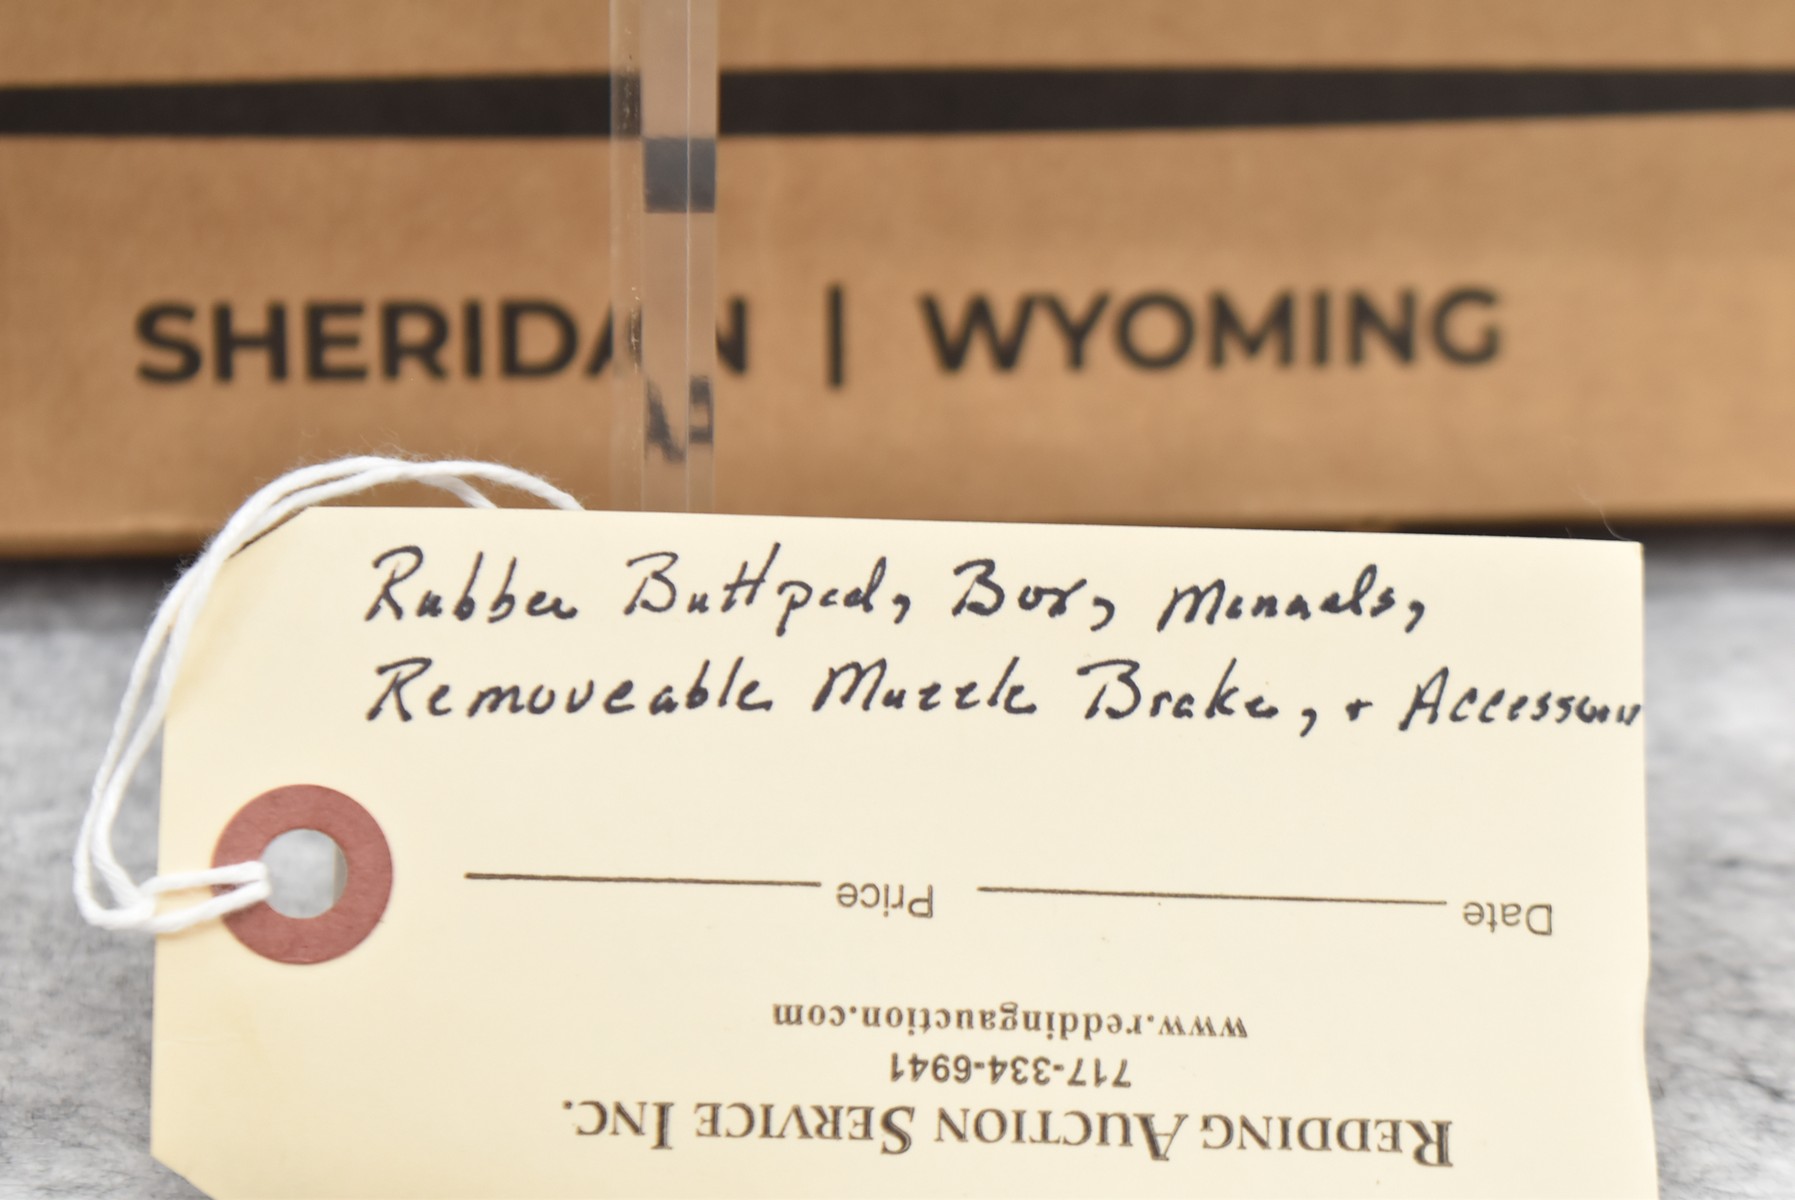 SHERIDAN | WYOMING
Rubber Buttpad, Box, Manuals,
Removeable Muzzle Brake, + Accessories
Date Price
www.reddingauction.com
717-334-6941
REDDING AUCTION SERVICE INC.